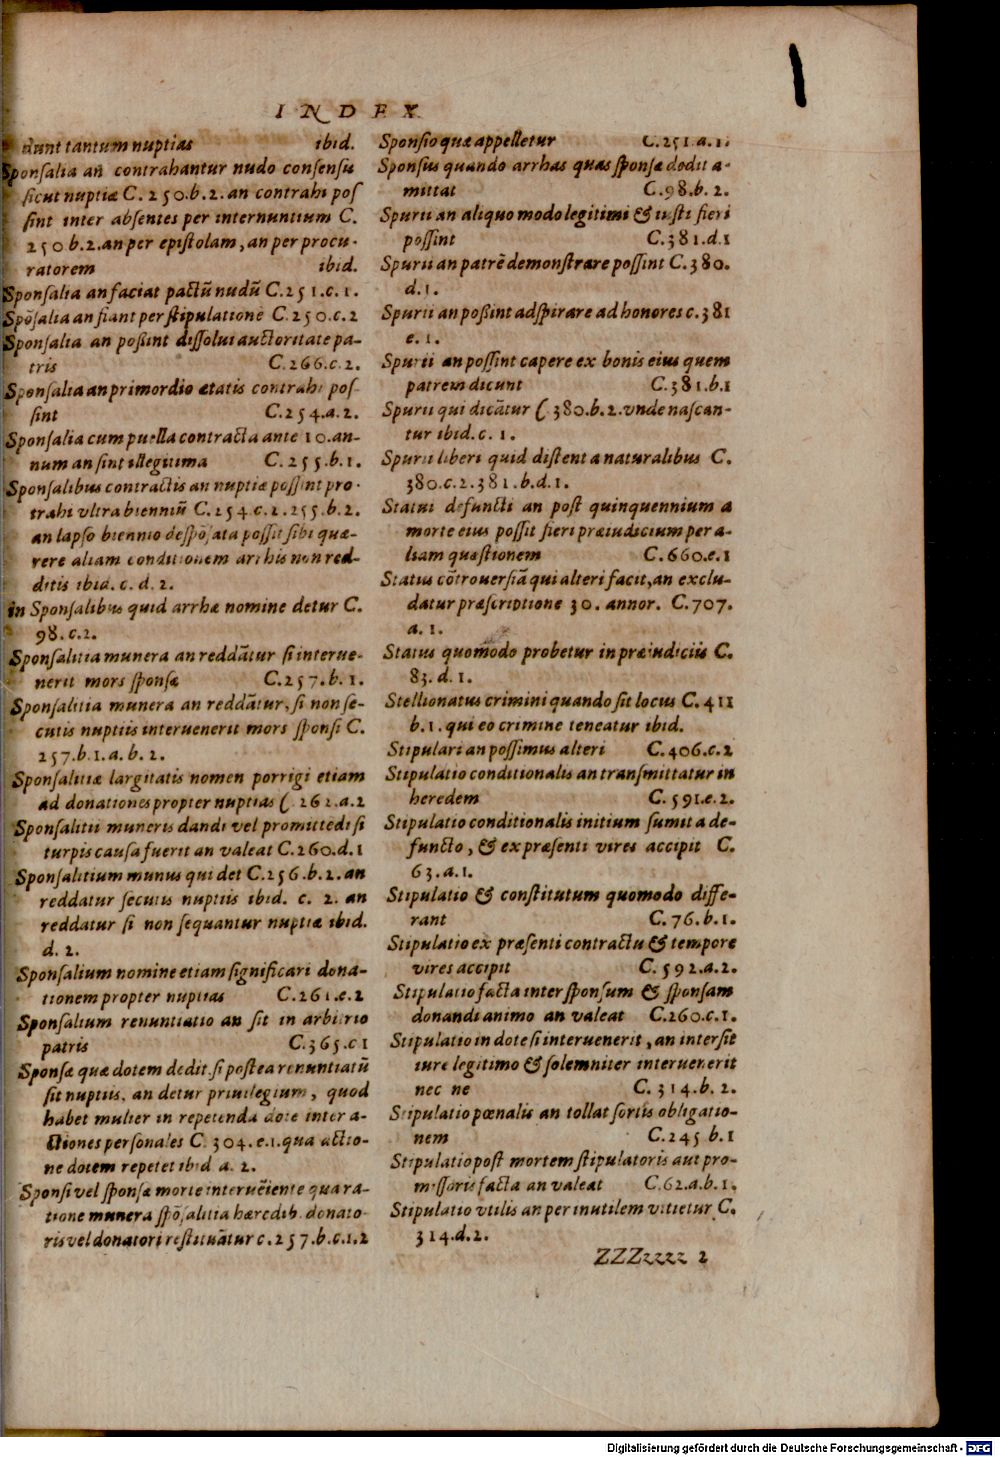 INDEX
dunt tantum nuptias ibid.
Sponsalia an contrahantur nudo consensu
sicut nuptiæ C. 250.b.2. an contrahi pos
sint inter absentes per internuntium C.
250 b.2. an per epistolam, an per procu-
ratorem ibid.
Sponsalia an faciat pactū nudū C.251.c.1.
Spōsalia an fiant per stipulationē C.250.c.2
Sponsalia an possint dissolui auctoritate pa-
tris C.266.c.2.
Sponsalia an primordio ætatis contrahi pos-
sint C.254.a.2.
Sponsalia cum puella contracta ante 10.an-
num an sint illegitima C.255.b.1.
Sponsalibus contractis an nuptiæ possint pro-
trahi vltra bienniū C.254.c.2.255.b.2.
an lapso biennio despōsata possit sibi quæ-
rere aliam conditionem arrhis non red-
ditis ibid. c. d. 2.
in Sponsalibus quid arrhæ nomine detur C.
98.c.2.
Sponsalitia munera an reddātur si interue-
nerit mors sponsæ C.257.b.1.
Sponsalitia munera an reddātur, si non se-
cutis nuptiis interuenerit mors sponsi C.
257.b.1.a.b.2.
Sponsalitiæ largitatis nomen porrigi etiam
ad donationes propter nuptias C.262.a.2
Sponsalitii muneris dandi vel promittēdi si
turpis causa fuerit an valeat C.260.d.1
Sponsalitium munus qui det C.256.b.2. an
reddatur secutis nuptiis ibid. c. 2. an
reddatur si non sequantur nuptiæ ibid.
d. 2.
Sponsalium nomine etiam significari dona-
tionem propter nuptias C.261.e.2
Sponsalium renuntiatio an sit in arbitrio
patris C.365.c1
Sponsæ quæ dotem dedit, si postea renuntiatū
sit nuptiis, an detur priuilegium, quod
habet mulier in repetenda dote inter a-
ctiones personales C.304.e.1.qua actio-
ne dotem repetet ibid a. 2.
Sponsi vel sponsæ morte interuēiente qua ra-
tione munera spōsalitia hæredib. donato-
ris vel donatori restituātur c.257.b.c.1.2
Sponsio quæ appelletur C.251.a.1.
Sponsus quando arrhas quas sponsæ dedit a-
mittat C.98.b.2.
Spurii an aliquo modo legitimi & iusti fieri
possint C.381.d.1
Spurii an patrē demonstrare possint C.380.
d.1.
Spurii an possint adspirare ad honores c.381
e.1.
Spurii an possint capere ex bonis eius quem
patrem dicunt C.381.b.1
Spurii qui dicātur C.380.b.2.vnde nascan-
tur ibid.c. 1.
Spurii liberi quid distent a naturalibus C.
380.c.2.381.b.d.1.
Statui defuncti an post quinquennium a
morte eius possit fieri præiudicium per a-
liam quæstionem C.660.e.1
Status cōtrouersiā qui alteri facit,an exclu-
datur præscriptione 30. annor. C.707.
a. 1.
Status quomodo probetur in præiudiciis C.
83.d.1.
Stellionatus crimini quando sit locus C.411
b.1.qui eo crimine teneatur ibid.
Stipulari an possimus alteri C.406.c.2
Stipulatio conditionalis an transmittatur in
heredem C.591.e.2.
Stipulatio conditionalis initium sumit a de-
functo, & ex præsenti vires accipit C.
63.a.1.
Stipulatio & constitutum quomodo diffe-
rant C.76.b.1.
Stipulatio ex præsenti contractu & tempore
vires accipit C.592.a.2.
Stipulatio facta inter sponsum & sponsam
donandi animo an valeat C.260.c.1.
Stipulatio in dote si interuenerit, an intersit
iure legitimo & solemniter interuenerit
nec ne C.314.b.2.
Stipulatio pœnalis an tollat sortis obligatio-
nem C.245 b.1
Stipulatio post mortem stipulatoris aut pro-
missoris facta an valeat C.62.a.b.1.
Stipulatio vtilis an per inutilem vitietur C.
314.d.2.
ZZZzzzz 2
Digitalisierung gefördert durch die Deutsche Forschungsgemeinschaft - DFG